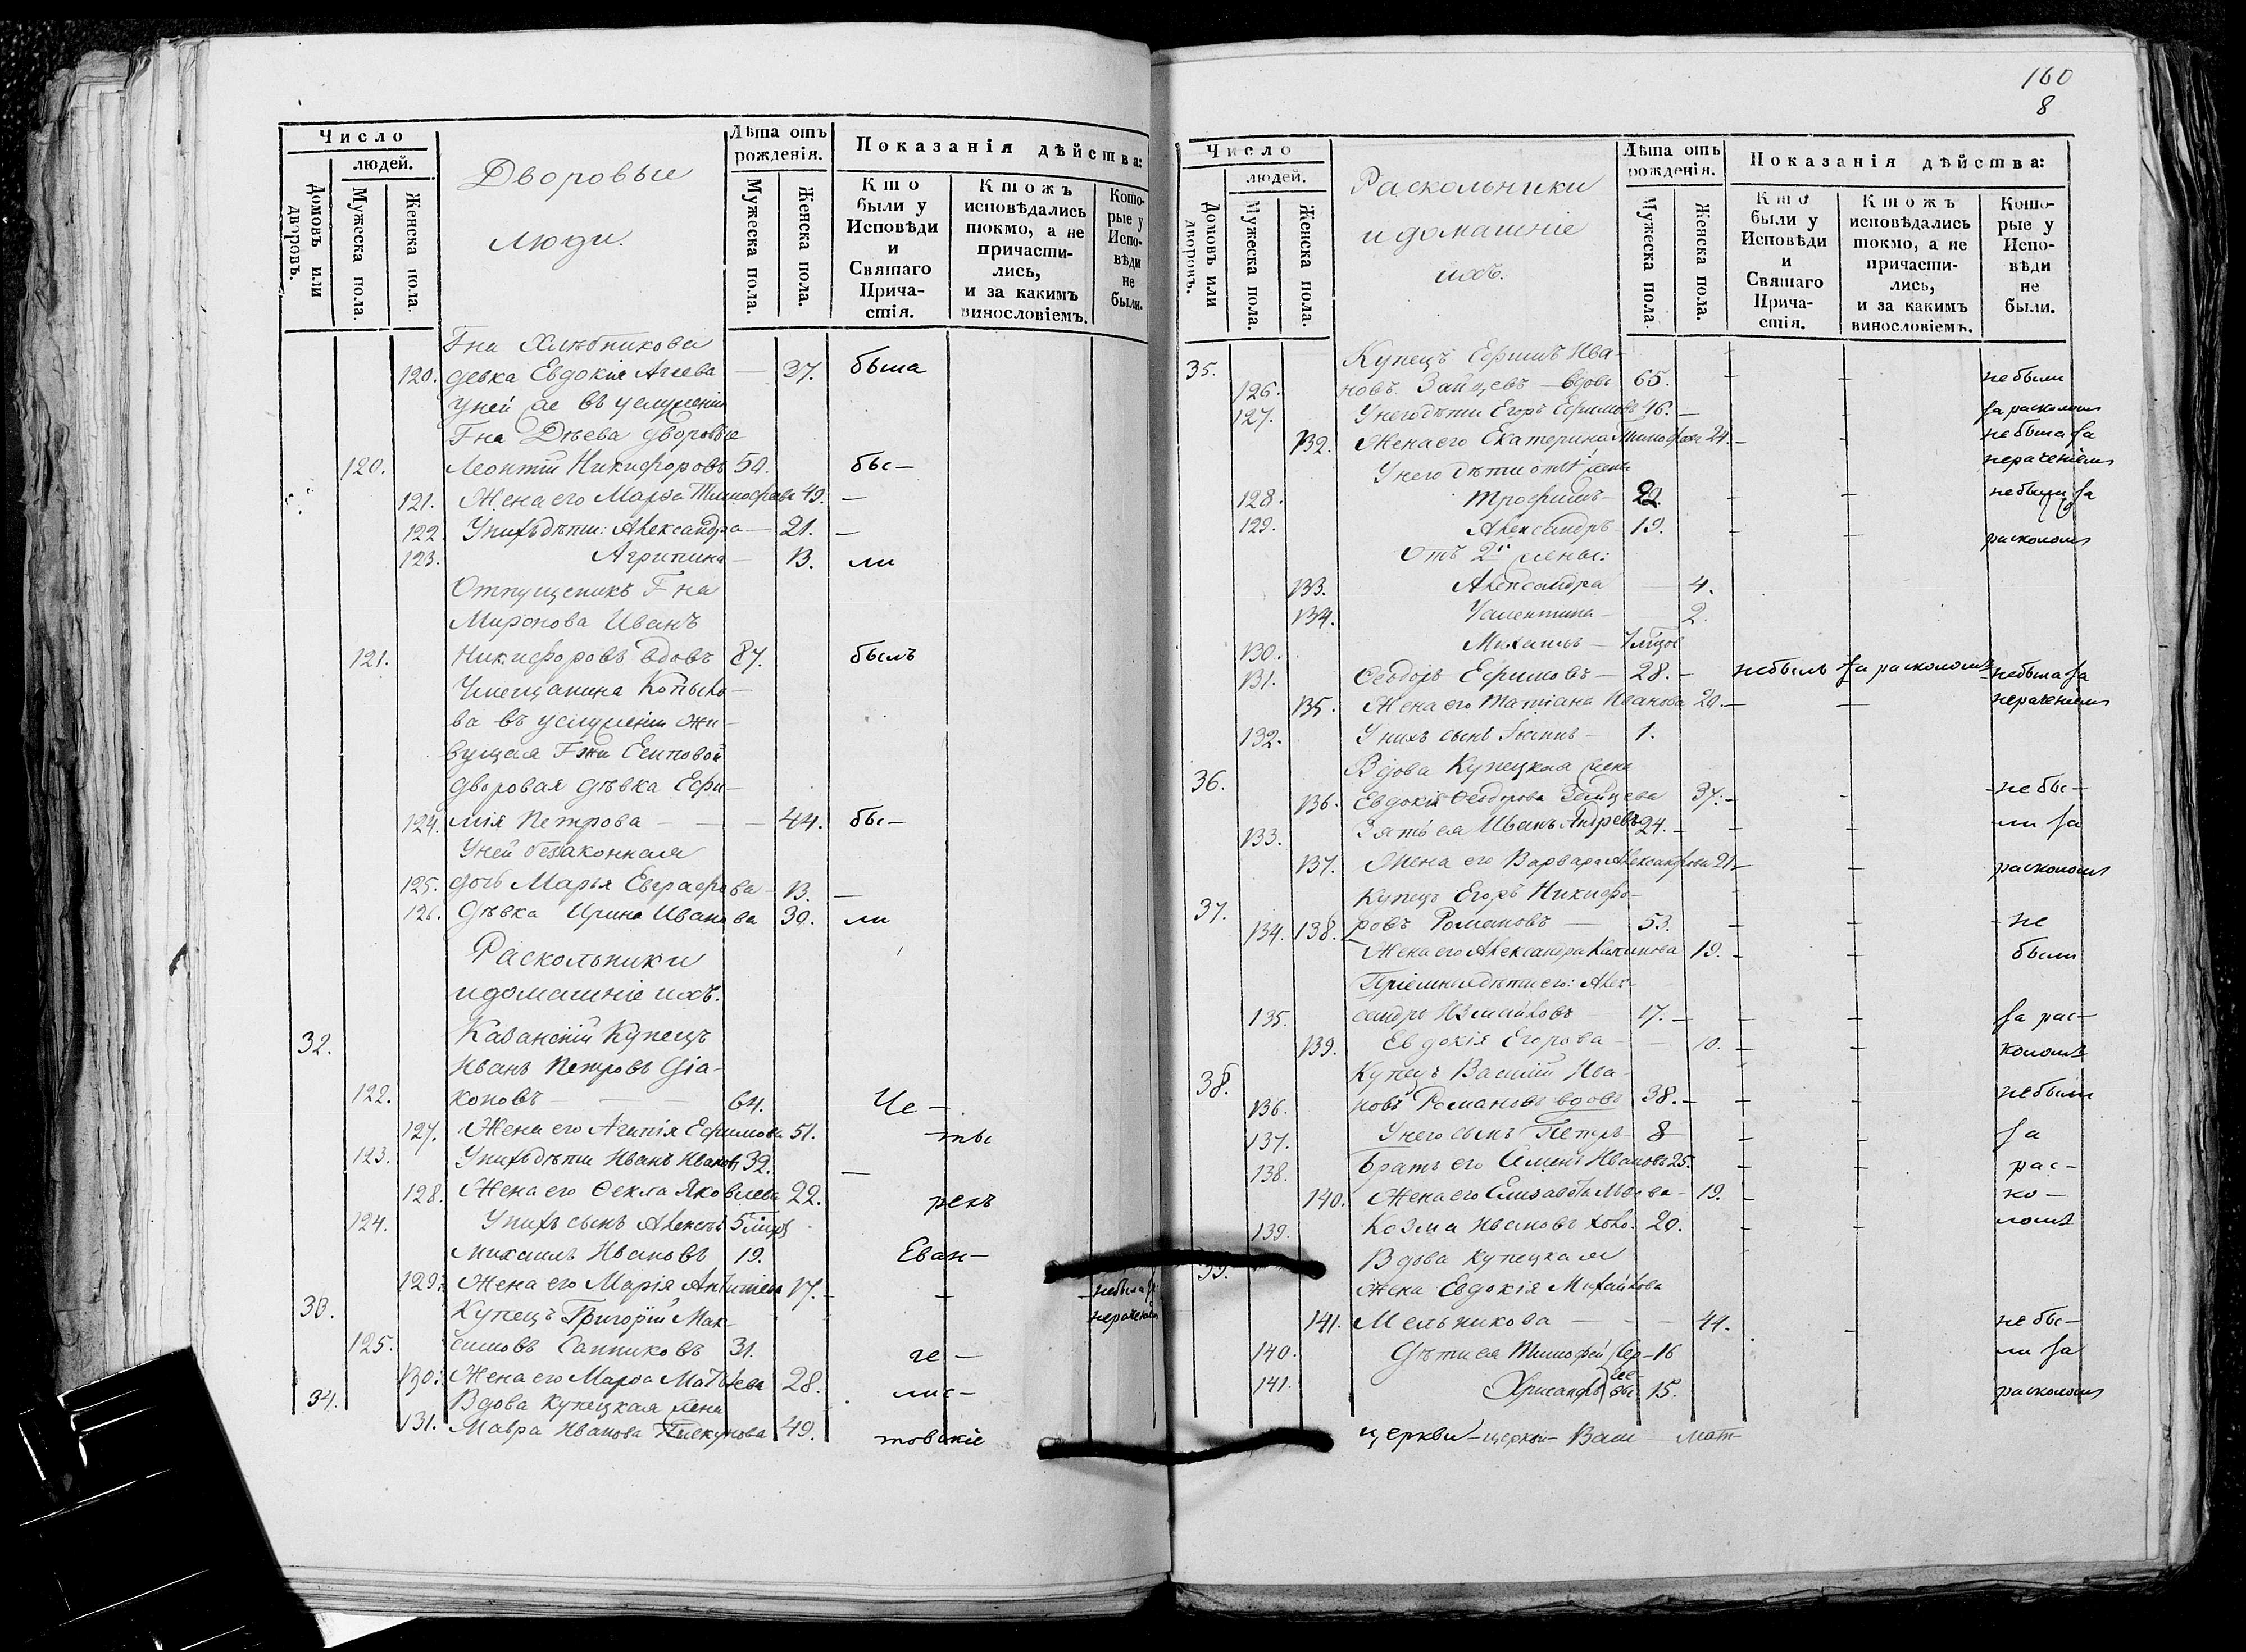 Число
людей.
Домовъ или дворовъ.
Мужеска пола.
Женска пола.
Дворовые
люди.
Лѣта отъ рожденія.
Мужеска пола.
Женска пола.
Показанія дѣйства:
Кто были у Исповѣди и Святаго Причастія.
Ктожъ исповѣдались токмо, а не причастились, и за какимъ винословіемъ.
Которые у Исповѣди не были.
Гна Хлѣбникова
120. девка Евдокія Агеева — 37. была
Уней же въ услуженіи
Гна Дѣева дворовые
120. Леонтій Никифоровъ 50. бы-
121. Жена его Марѳа Тимофеева 49. —
122. Унихъ дѣти: Александра — 21. —
123. Агрипина — 13. ли
Отпущеникъ Гна
Миронова Иванъ
121. Никифоровъ вдовъ 87. былъ
Умещанина Копыло-
ва въ услуженіи жи-
вущая Гжи Есиповой
дворовая дѣвка Ефи-
124. мія Петрова — — — 44. бы-
Уней беззаконная
125. дочь Марья Евграфова — 13. —
126. Дѣвка Ирина Иванова 30. ли
Раскольники
и домашніе ихъ.
32. Казанскій Купецъ
Иванъ Петровъ Дія-
122. коновъ — — 64. Че-
127. Жена его Агапія Ефимова 51. ты
123. Унихъ дѣти Иванъ Ивановъ 32. —
128. Жена его Ѳекла Яковлева 22. рехъ
124. Унихъ сынъ Алексѣй 5 мцов
Михаилъ Ивановъ 19. Еван-
129. Жена его Марія 17. — — небыла за
33. Купецъ Григорій Мак- нераченіем
125. симовъ Саппиковъ 31. ге-
130. Жена его Марѳа Матвѣева 28. лис-
34. Вдова Купецкая жена
131. Мавра Иванова 49. товскіе
160
8
Число
людей.
Домовъ или дворовъ.
Мужеска пола.
Женска пола.
Раскольники
и домашніе
ихъ.
Лѣта отъ рожденія.
Мужеска пола.
Женска пола.
Показанія дѣйства:
Кто были у Исповѣди и Святаго Причастія.
Ктожъ исповѣдались токмо, а не причастились, и за какимъ винословіемъ.
Которые у Исповѣди не были.
35. Купецъ Ефимъ Ива-
126. новъ Зайцевъ — вдовъ 65. — — небыли
127. Унего дѣти Егоръ Ефимовъ 46. — — за расколом
132. Жена его Екатерина Тимофеева 24. — — небыла за
Унего дѣти от 1й жены нераченіем
128. Трофимъ — 22 — — небыли за
129. Александръ 19. — — расколом
Отъ 2й жены:
133. Александра — 4.
134. — 2.
130. Михаилъ — 7 мцов
131. Ѳеодоръ Ефимовъ — 28. — небылъ за расколомъ — небыла за
135. Жена его Татіана Иванова 20. — — нераченіем
132. Унихъ сынъ — 1.
36. Вдова Купецкая жена
136. Евдокія Ѳеодорова Зайцева 37. — — небы-
133. Зять ея Иванъ Андреевъ 24. — — ли за
137. Жена его Варвара Александрова 21. — расколом
37. Купецъ Егоръ Никифо-
134. 138. ровъ Романовъ — 53. — — не
Жена его Александра 19. — — были
Пріемыши дѣти его: Алек-
135. сандръ Измайловъ 17. — — — за рас-
139. Евдокія Егорова — 10. — — коломъ
38. Купецъ Василій Ива-
136. новъ Романовъ вдовъ 38. — — небыли
137. Унего сынъ Петръ — 8 — — за
138. Братъ его Семенъ Ивановъ 25. — — рас-
140. Жена его Елисавета Львова — 19. — ко-
139. Козма Ивановъ холо. 20. — — ломъ
39. Вдова купецкая
жена Евдокія Михайлова
141. Мельникова — — — 44. — небы-
140. Дѣти ея Тимофей Сер- 16 ли за
141. Хрисанфъ гѣе- вы. 15. расколом
церкви — церкви — Ваш мат-